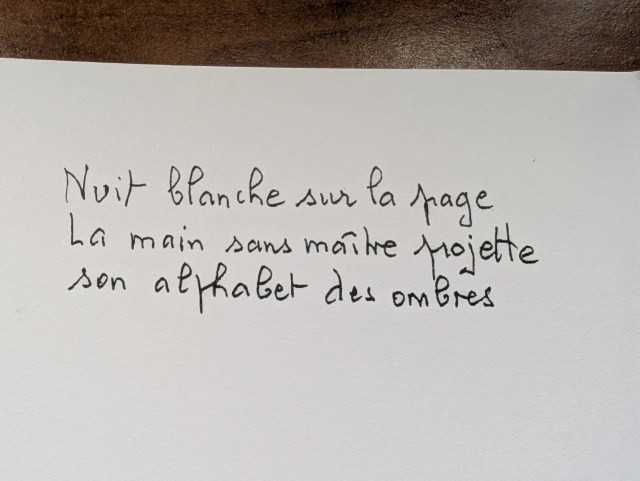 Nuit blanche sur la page
La main sans maître projette
son alphabet des ombres